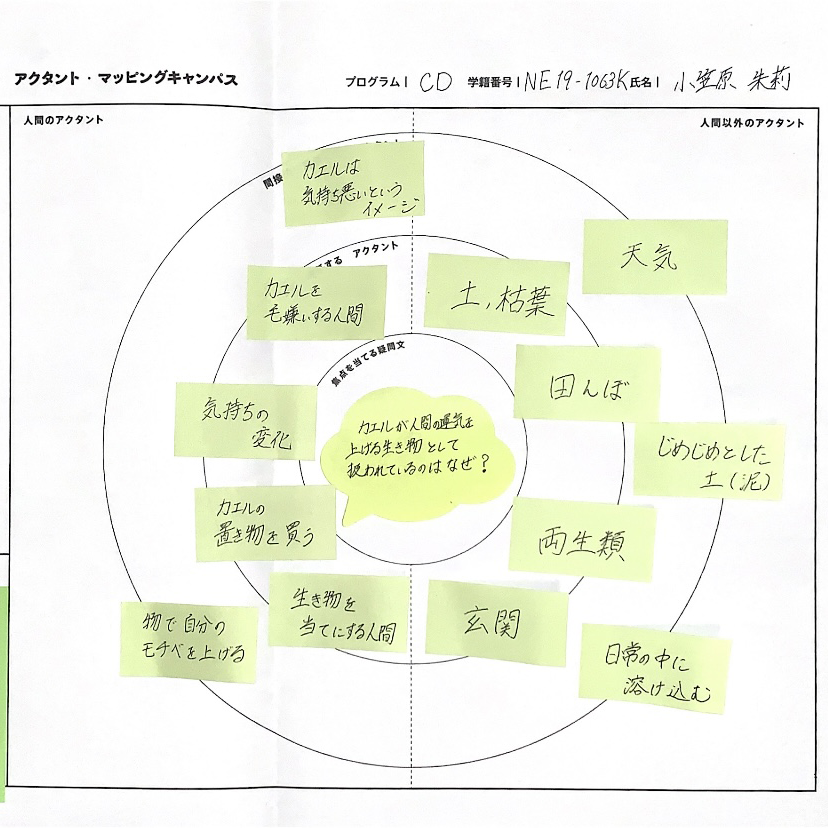 アクタント・マッピングキャンパス
プログラム | CD 学籍番号 | NE19-1063K 氏名 | 小笠原 朱莉
人間のアクタント
人間以外のアクタント
間接
カエルは
気持ち悪いという
イメージ
天気
する アクタント
カエルを
毛嫌いする人間
土,枯葉
焦点を当てる疑問文
田んぼ
気持ちの
変化
カエルが人間の運気を
上げる生き物として
扱われているのはなぜ?
じめじめとした
土(泥)
カエルの
置き物を買う
両生類
生き物を
当てにする人間
玄関
物で自分の
モチベを上げる
日常の中に
溶け込む